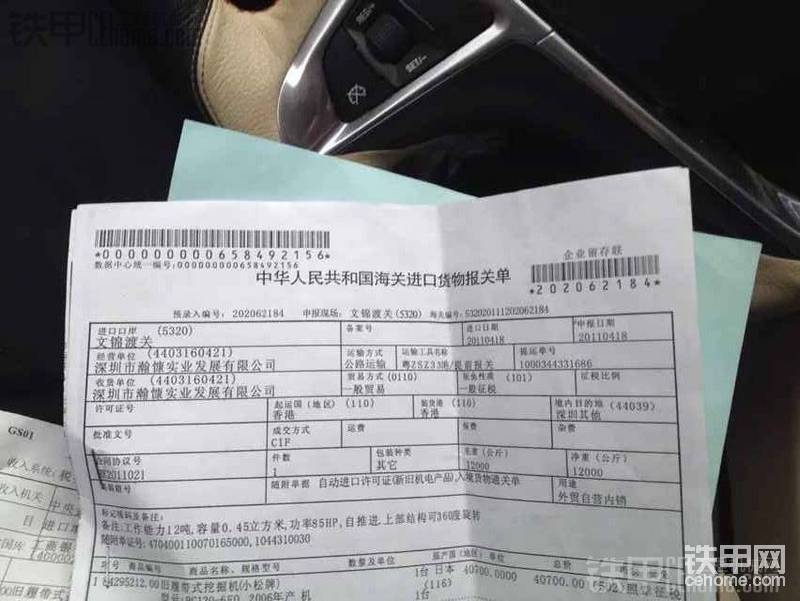 铁甲网
SET/-
*0000000000658492156*
数据中心统一编号:0000000000658492156
企业留存联
*202062184*
中华人民共和国海关进口货物报关单
预录入编号: 202062184 申报现场: 文锦渡关(5320) 海关编号: 532020111202062184
进口口岸 (5320) 备案号 进口日期 申报日期
文锦渡关 20110418 20110418
经营单位 (4403160421) 运输方式 运输工具名称 提运单号
深圳市瀚慷实业发展有限公司 公路运输 1000344331686
收货单位 (4403160421) 贸易方式(0110) 征免性质 (101) 征税比例
深圳市瀚慷实业发展有限公司 一般贸易 一般征税
许可证号 起运国(地区) (110) 装货港 (110) 境内目的地 (44039)
香港 香港 深圳其他
批准文号 成交方式 运费 保费 杂费
CIF
合同协议号 件数 包装种类 毛重(公斤) 净重(公斤)
2011021 1 其它 12000 12000
随附单据 自动进口许可证(新旧机电产品),入境货物通关单 用途
外贸自营内销
标记唛码及备注:
备注:工作能力12吨,容量0.45立方米,功率85HP,自推进,上部结构可360度旋转
随附单证号:470400110070165000,1044310030
项号 商品编号 商品名称、规格型号 数量及单位 原产国(地区) 单价 总价
1 84295212.00旧履带式挖掘机(小松牌) 1台 日本 40700.0000 40700.00 (502) 照章征税
型号:PC130-6E0, 2006年产 1台 (116)
GS01
收入系统: 税
收入机关 中央
目 进口
铁甲网
cehome.com